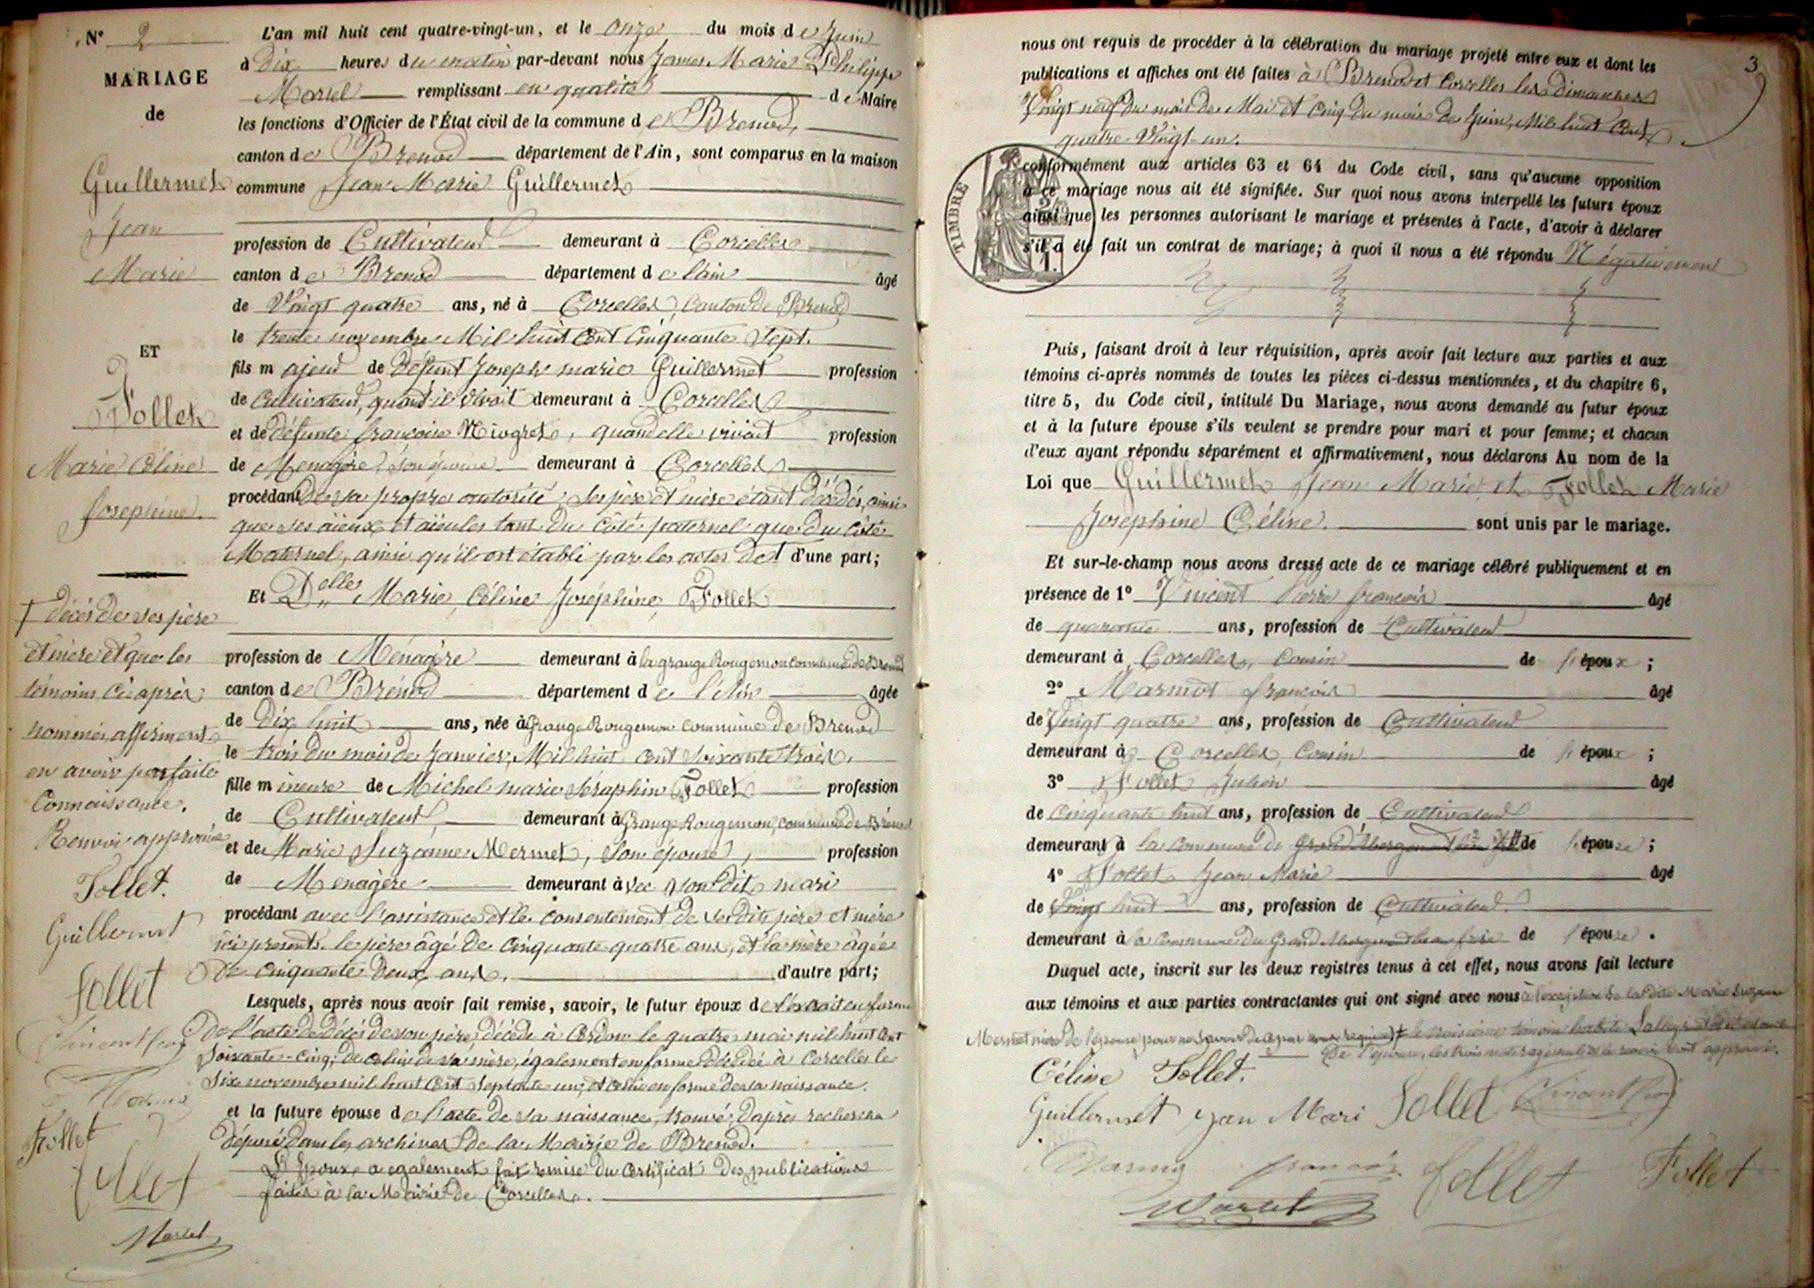 N° 2
MARIAGE
de
Guillermet
Jean
Marie
ET
Follet
Marie Céline
Joséphine.
† décès de ses père
et mère et que les
témoins ci-après
nommés, affirment
en avoir parfaite
Connaissance.
Renvoi approuvé
Follet.
Guillermet
Follet
Vincent
Follet
Follet
Martel
L'an mil huit cent quatre-vingt-un, et le onze du mois de Juin
à Dix heures du matin par-devant nous James Marie Philippe
Martel remplissant en qualité de Maire
les fonctions d'Officier de l'État civil de la commune de Brenod,
canton de Brenod département de l'Ain, sont comparus en la maison
commune Jean Marie Guillermet
profession de Cultivateur demeurant à Corcelles
canton de Brenod département de l'ain âgé
de Vingt quatre ans, né à Corcelles, Canton de Brenod
le trente novembre Mil huit Cent Cinquante Sept.
fils majeur de Défunt Joseph marie Guillermet profession
de Cultivateur, quand il vivait demeurant à Corcelles
et de défunte françoise Niogret, quand elle vivait profession
de Menagère, son épouse demeurant à Corcelles
procédant de sa propre autorité, ses père et mère étant décédés, ainsi
que ses aïeux et aïeules tant du côté paternel que du côté
Maternel, ainsi qu'il est établi par les actes de † d'une part;
Et Delle Marie, Céline Joséphine, Follet
profession de Ménagère demeurant à la grange Rougemont commune de Brenod
canton de Brénod département de l'Ain âgée
de Dix huit ans, née à Grange Rougemont commune de Brenod
le trois du mois de Janvier, Mil huit cent soixante trois.
fille mineure de Michel marie Séraphin Follet profession
de Cultivateur, demeurant à Grange Rougemont, commune de Brénod
et de Marie Suzanne Mermet, son épouse, profession
de Menagère demeurant avec son dit mari
procédant avec l'assistance et le consentement de ses dits père et mère
ici présents. le père âgé de cinquante quatre ans, et la mère âgée
de cinquante deux ans. d'autre part;
Lesquels, après nous avoir fait remise, savoir, le futur époux de l'extrait en forme
de l'acte de décès de son père, décédé à Cerdon le quatre mai mil huit cent
soixante-cinq; de celui de sa mère, également en forme décédée à Corcelles le
six novembre mil huit cent septante un; et celui en forme de sa naissance.
et la future épouse de l'acte de sa naissance, trouvé, d'après recherche
déposé dans les archives de la Mairie de Brenod.
L'Epoux a également fait remise du certificat des publications
faites à la Mairie de Corcelles.
3
nous ont requis de procéder à la célébration du mariage projeté entre eux et dont les
publications et affiches ont été faites à Brenod et Corcelles les dimanches
Vingt neuf du mois de Mai et Cinq du mois de Juin, Mil huit Cent
quatre-Vingt-un.
conformément aux articles 63 et 64 du Code civil, sans qu'aucune opposition
à ce mariage nous ait été signifiée. Sur quoi nous avons interpellé les futurs époux
ainsi que les personnes autorisant le mariage et présentes à l'acte, d'avoir à déclarer
s'il a été fait un contrat de mariage; à quoi il nous a été répondu Négativement
TIMBRE
Puis, faisant droit à leur réquisition, après avoir fait lecture aux parties et aux
témoins ci-après nommés de toutes les pièces ci-dessus mentionnées, et du chapitre 6,
titre 5, du Code civil, intitulé Du Mariage, nous avons demandé au futur époux
et à la future épouse s'ils veulent se prendre pour mari et pour femme; et chacun
d'eux ayant répondu séparément et affirmativement, nous déclarons Au nom de la
Loi que Guillermet Jean Marie, et Follet Marie
Joséphine Céline. sont unis par le mariage.
Et sur-le-champ nous avons dressé acte de ce mariage célébré publiquement et en
présence de 1° Vincent Pierre françois âgé
de quarante ans, profession de Cultivateur
demeurant à Corcelles, Cousin de l'époux;
2° Marmot françois âgé
de Vingt quatre ans, profession de Cultivateur
demeurant à Corcelles, Cousin de l'époux;
3° Follet Julien âgé
de cinquante huit ans, profession de Cultivateur
demeurant à la commune de Grand Abergement de l'épouse;
4° Follet Jean Marie âgé
de Vingt huit ans, profession de Cultivateur
demeurant à la commune du Grand Abergement beau frère de l'épouse.
Duquel acte, inscrit sur les deux registres tenus à cet effet, nous avons fait lecture
aux témoins et aux parties contractantes qui ont signé avec nous à l'exception de la dite Marie Suzanne
Mermet mère de l'épouse pour ne savoir le troisième témoin habite
de l'épouse, les trois mots rayés nuls et le renvoi sont approuvés.
Céline Follet.
Guillermet Jan Mari Follet Vincent
Marmot françois Follet Follet
Martel